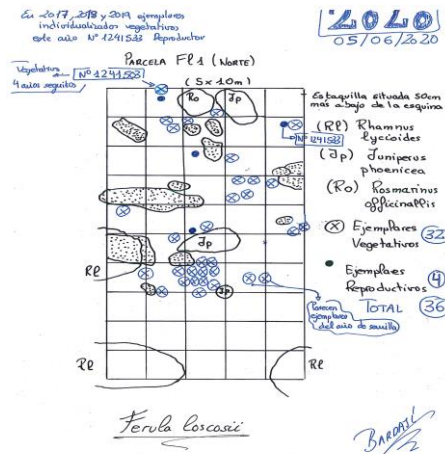 En 2017, 2018 y 2019 ejemplares
individualizados vegetativos
este año Nº 1241533 Reproductor
2020
05/06/2020
PARCELA Fl 1 (NORTE)
(5 x 10m)
Vegetativo
4 años seguidos
Nº 1241503
Ro
Jp
Estaquilla situada 50cm
mas abajo de la esquina
Nº 1241533
(Rl) Rhamnus
lycioides
(Jp) Juniperus
phoenicea
(Ro) Rosmarinus
officinallis
Ejemplares
Vegetativos
32
Jp
Rl
Ejemplaes
Reproductivos
4
TOTAL
36
Jp
Parecen
ejemplares
del año de semilla
Rl
Rl
Ferula loscosii
BARDAJÍ